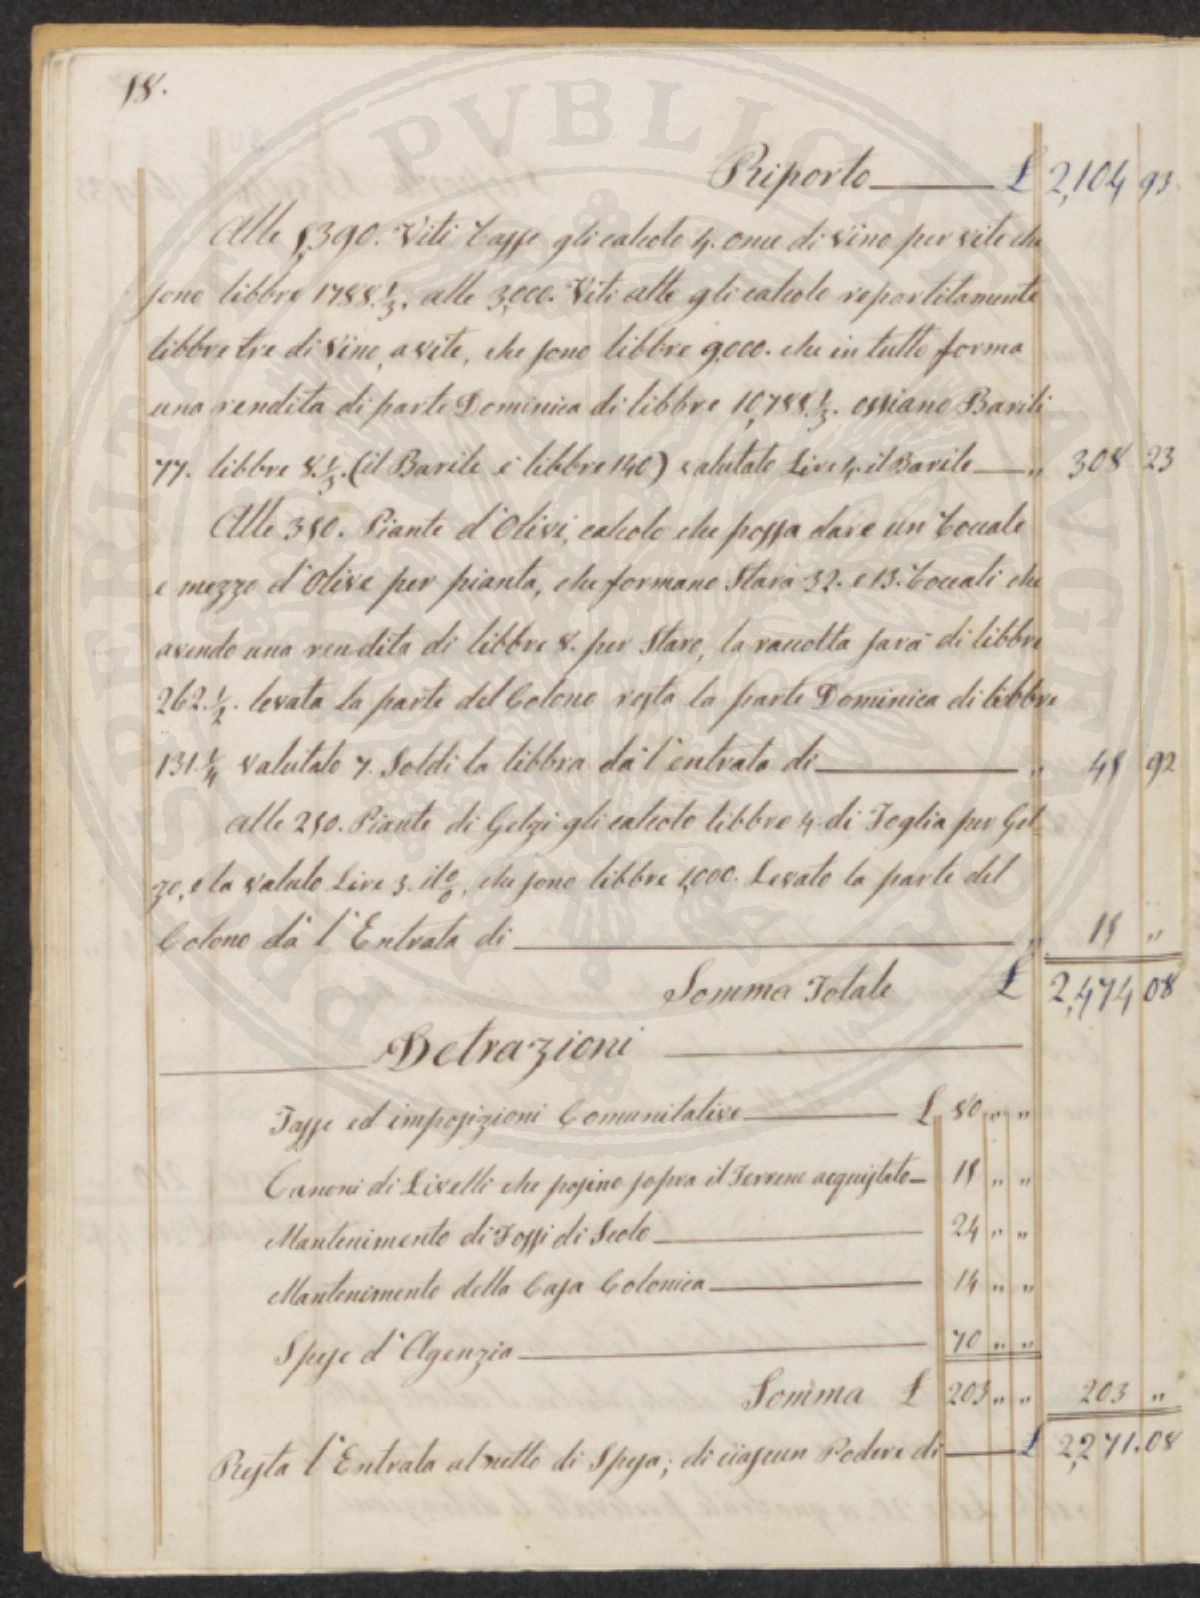 18.
Riporto £ 2,104 93
Alle 5,390. Viti Basse gli calcolo 4. once di vino per vite che
sono libbre 1788.⅓. alle 3,000. Viti alte gli calcolo repartitamente
libbre tre di vino, a vite, che sono libbre 9,000. che in tutto forma
una rendita di parte Dominica di libbre 10,788.⅓. ossiano Barili
77. libbre 8.⅓. (il Barile è libbre 140) valutato Lire 4. il Barile „ 308 23
Alle 350. Piante d'Olivi, calcolo che possa dare un Boccale
e mezzo d'Olive per pianta, che formano Stara 32. e 13. Boccali che
avendo una rendita di libbre 8. per Staro, la raccolta sarà di libbre
262.½. levata la parte del Colono resta la parte Dominica di libbre
131.¼ valutato 7. Soldi la libbra dà l'entrata di „ 45 92
alle 250. Piante di Gelzi gli calcolo libbre 4. di Foglia per Gel=
zo, e la valuto Lire 3. il %, che sono libbre 1,000. Levato la parte del
Colono dà l'Entrata di „ 15 „
Somma Totale £ 2,474 08
Detrazioni
Tasse ed imposizioni Comunitative £ 80 „ „
Canoni di Livelli che posino sopra il Terreno acquistato 15 „ „
Mantenimento di Fossi di Scolo 24 „ „
Mantenimento della Casa Colonica 14 „ „
Spese d'Agenzia 70 „ „
Somma £ 203 „ „ 203 „
Resta l'Entrata al netto di Spesa; di ciascun Podere di £ 2,271.08
PROSPERITATI PVBLICAE AVGENDAE